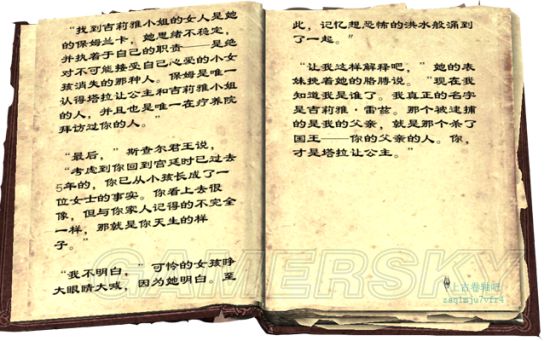 “找到吉莉雅小姐的女人是她
的保姆兰卡，她思绪不稳定，
并执着于自己的职责——是绝
对不可能接受自己心爱的小女
孩消失的那种人。保姆是唯一
认得塔拉让公主和吉莉雅小姐
的人，并且也是唯一在疗养院
拜访过你的人。”
“最后，”斯查尔君王说，
“考虑到你回到宫廷时已过去
5年的，你已从小孩长成了一
位女士的事实。你看上去很
像，但与你家人记得的不完全
一样，那就是你天生的样
子。”
“我不明白，”可怜的女孩睁
大眼睛大喊，因为她明白。至
此，记忆想恐怖的洪水般涌到
了一起。”
“让我这样解释吧，”她的表
妹挽着她的胳膊说。“现在我
知道我是谁了。我真正的名字
是吉莉雅·雷兹。那个被逮捕
的是我的父亲，就是那个杀了
国王——你的父亲的人。你，
才是塔拉让公主。”
GAMERSKY
上古卷轴吧
zaq1mju7vfr4